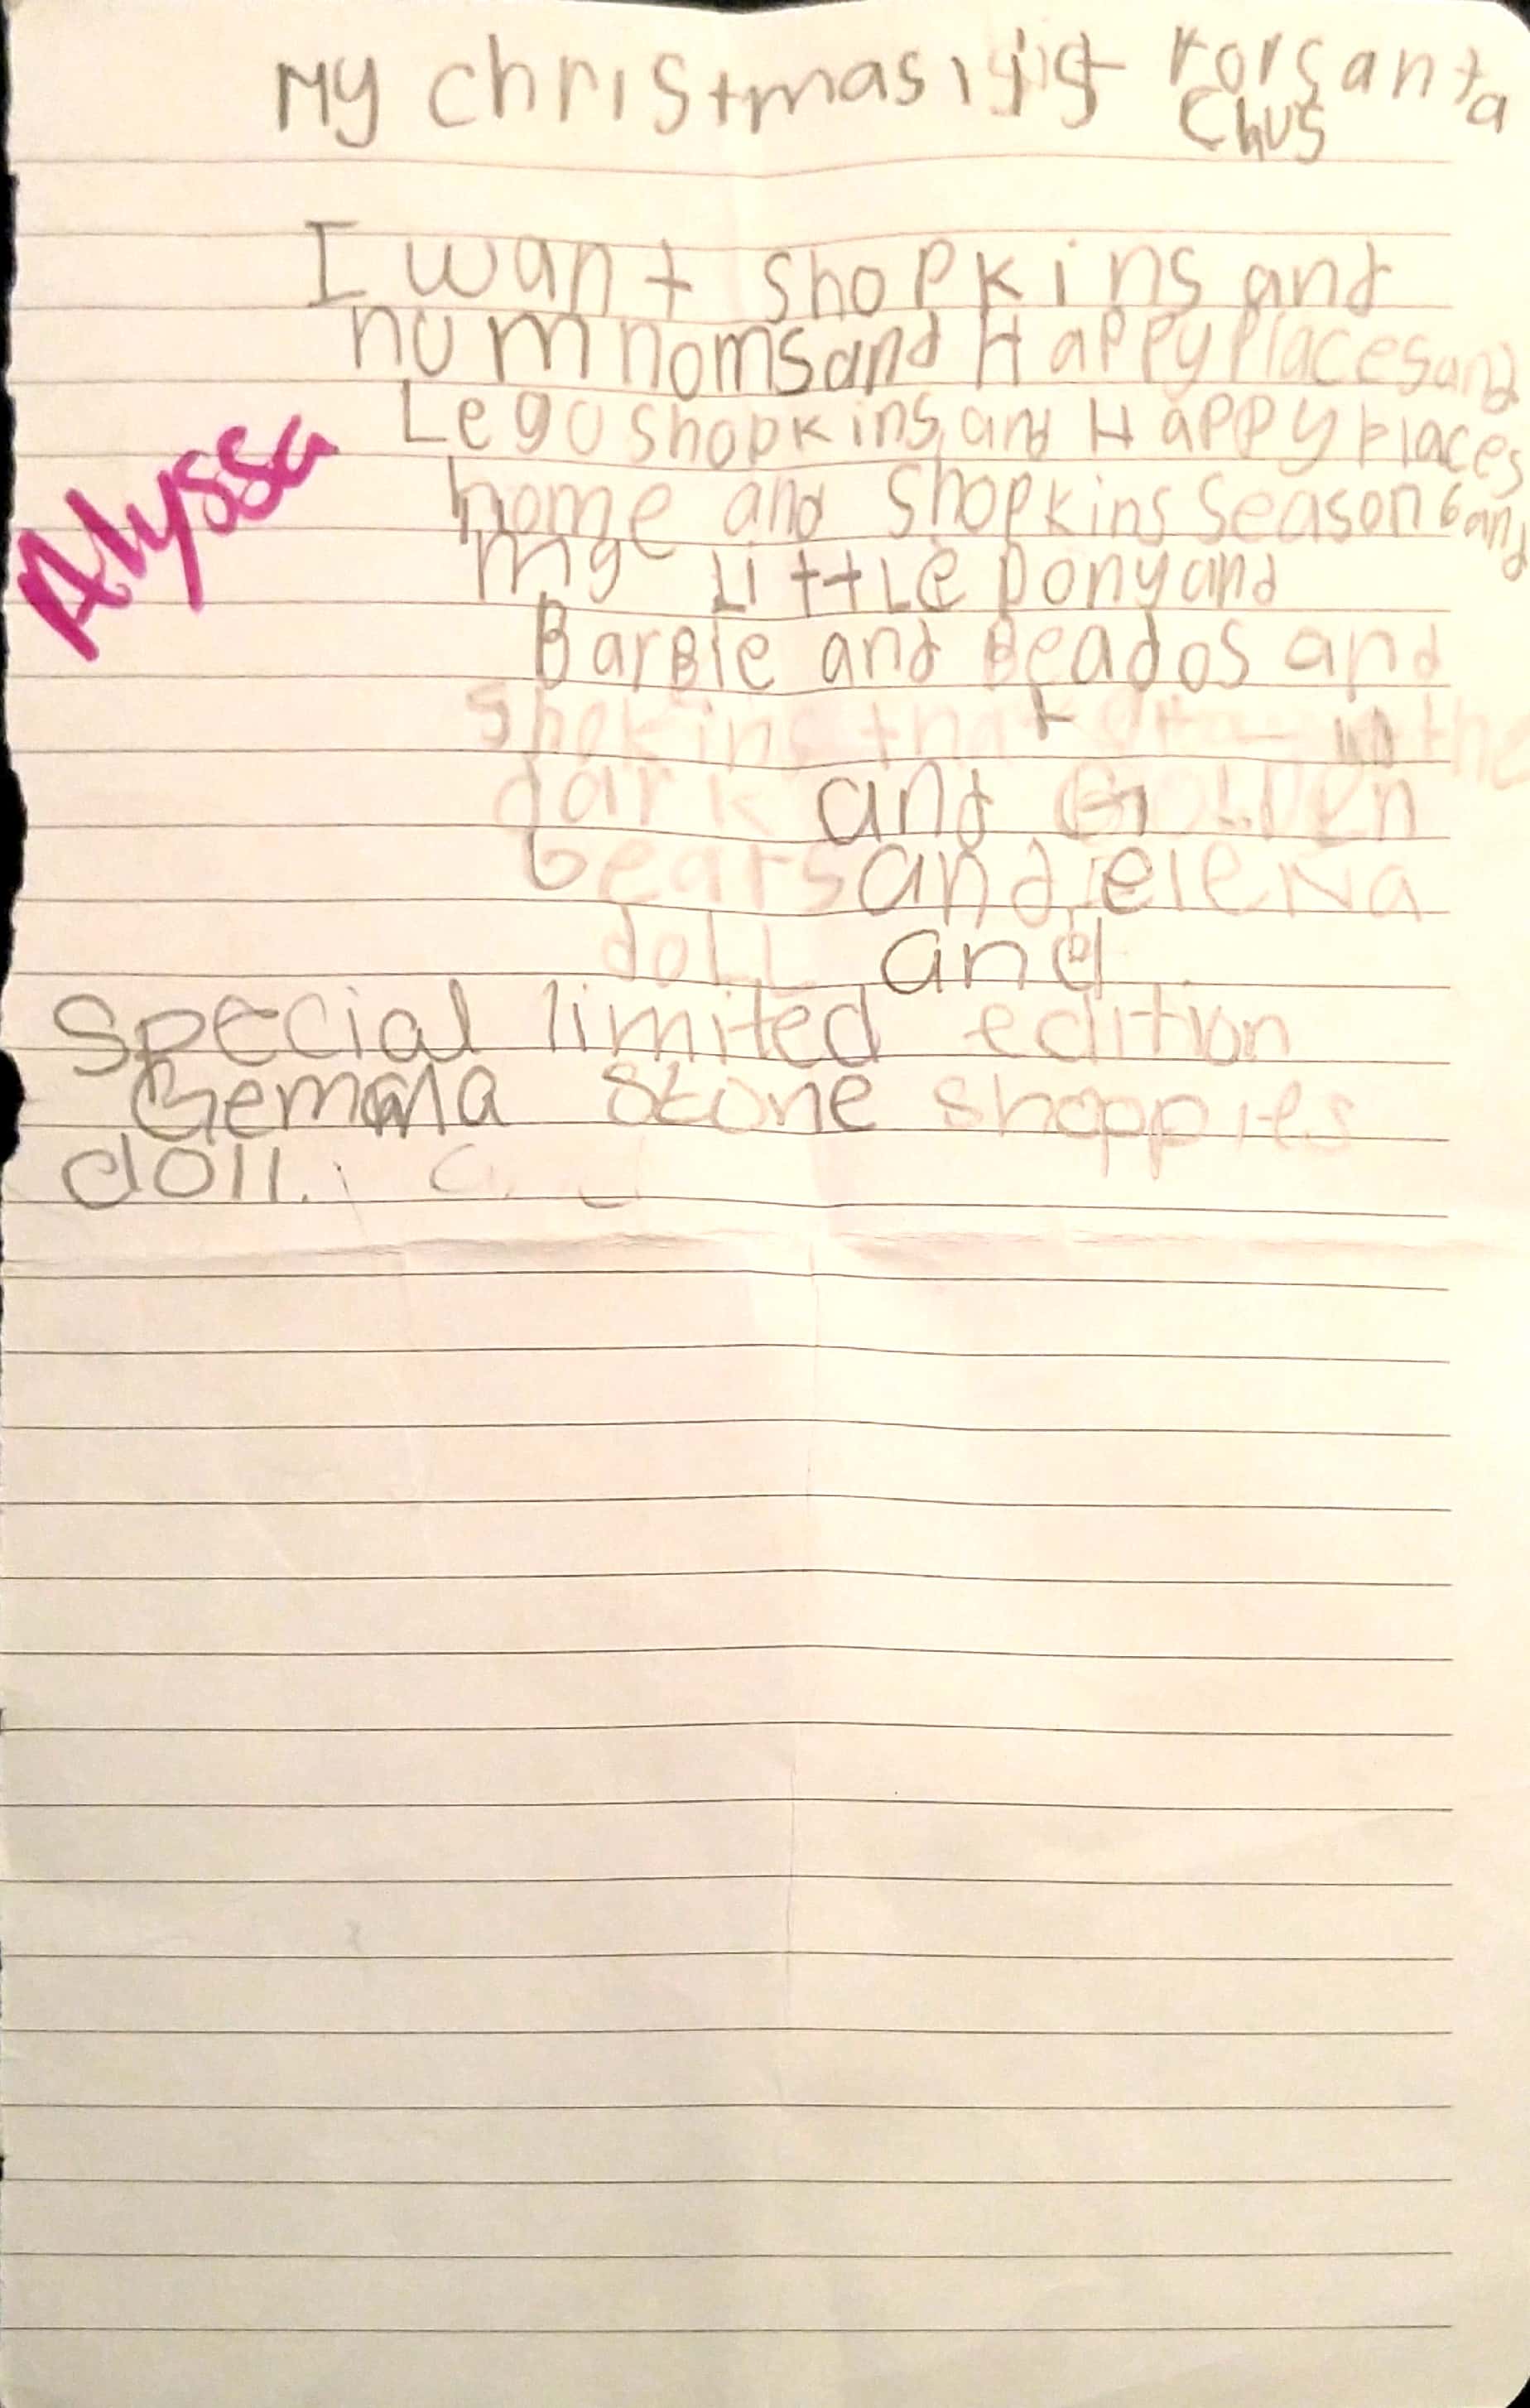 My christmas list for santa
Clus
I want shopkins and
num noms and Happy Places and
Lego shopkins and Happy Places
home and Shopkins Season 6 and
my LittLe pony and
BarBie and Beados and
Shokins that in the
dark and GoLden
bears and eleNa
doLL and
special limited edition
Gemma Stone shoppies
doll.
Alyssa